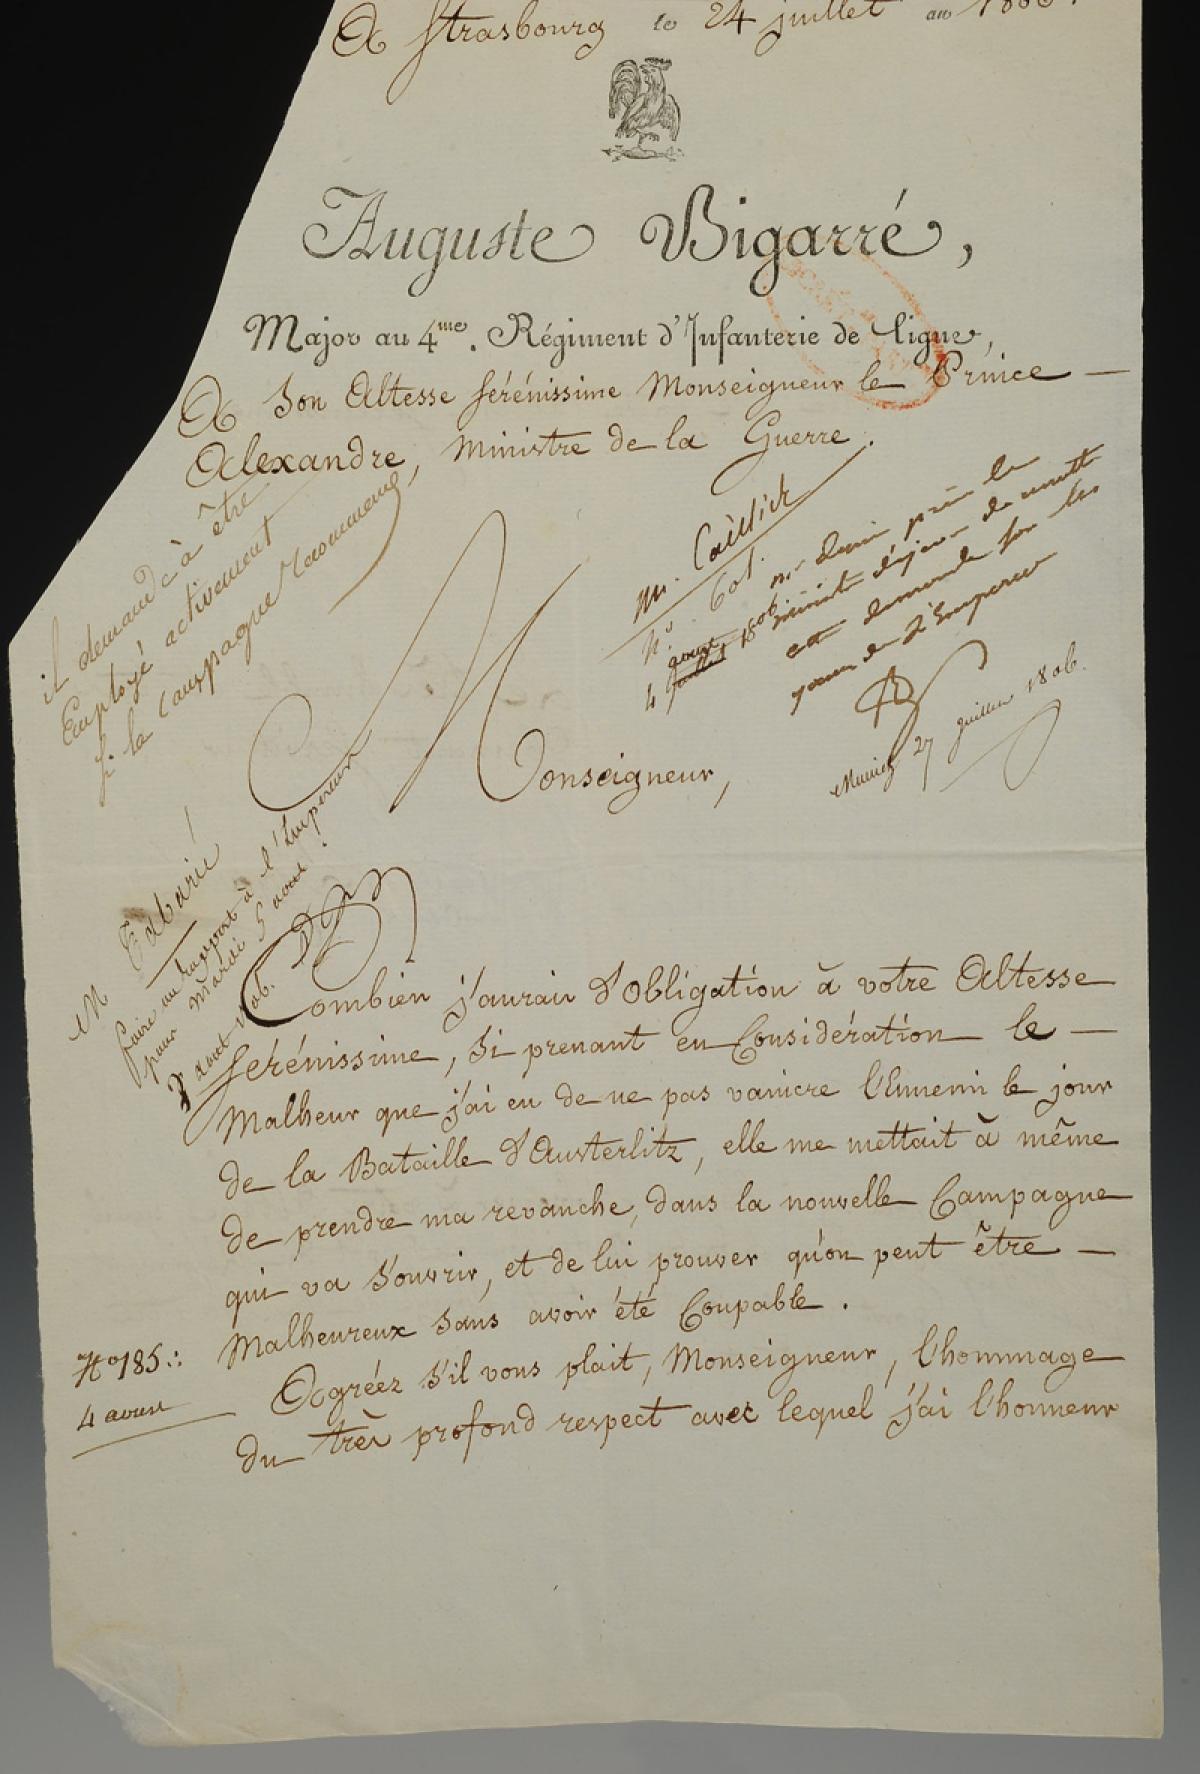 A Strasbourg le 24 juillet an 1806.
Auguste Bigarré,
Major au 4me. Régiment d'Infanterie de ligne,
A Son Altesse Sérénissime Monseigneur le Prince
Alexandre, Ministre de la Guerre.
il demande à être
Employé activement
si la Campagne recommence
M. Caillier
N.º 601.
4 août 1806
juillet
on demi prie le
ministre de mettre
cette demande sous les
yeux de l'Empereur
Munich 27 juillet 1806.
Monseigneur,
M Tabarié
faire un rapport à l'Empereur
pour Mardi 5 août.
août 1806.
Combien j'aurais d'obligation à votre Altesse
Sérénissime, si prenant en Considération le
Malheur que j'ai eu de ne pas vaincre l'Ennemi le jour
de la Bataille d'Austerlitz, elle me mettait à même
de prendre ma revanche, dans la nouvelle Campagne
qui va s'ouvrir, et de lui prouver qu'on peut être
Malheureux sans avoir été Coupable.
Nº 185
4 aoust
Agréez s'il vous plait, Monseigneur, l'hommage
du très profond respect avec lequel j'ai l'honneur